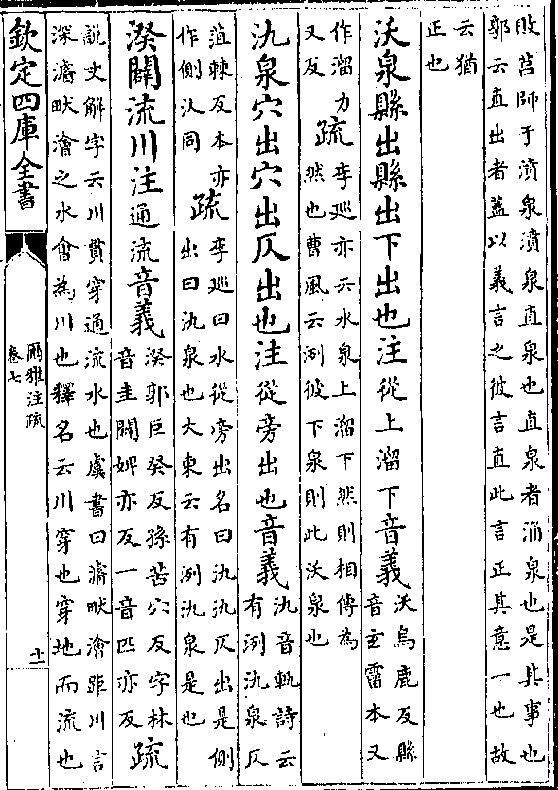 敗莒師于濆泉濆泉直泉也直泉者涌泉也是其事也
郭云直出者蓋以義言之彼言直此言正其意一也故
云猶
正也
沃泉縣出縣出下出也注從上溜下音義沃烏鹿反縣
音玄霤本又
作溜力
又反疏李巡亦云水泉上溜下然則相傳為
然也曹風云洌彼下泉則此沃泉也
氿泉穴出穴出仄出也注從旁出也音義氿音軌詩云
有洌氿泉仄
葅棘反本亦
作側汄同疏李巡曰水從旁出名曰氿氿仄出是側
出曰氿泉也大東云有洌氿泉是也
湀闢流川注通流音義湀郭巨癸反孫苦穴反字林
音圭闢婢亦反一音匹亦反疏
說文解字云川貫穿通流水也虞書曰濬畎澮距川言
深濬畎澮之水會為川也釋名云川穿也穿地而流也
欽定四庫全書
爾雅注疏
卷七
十一